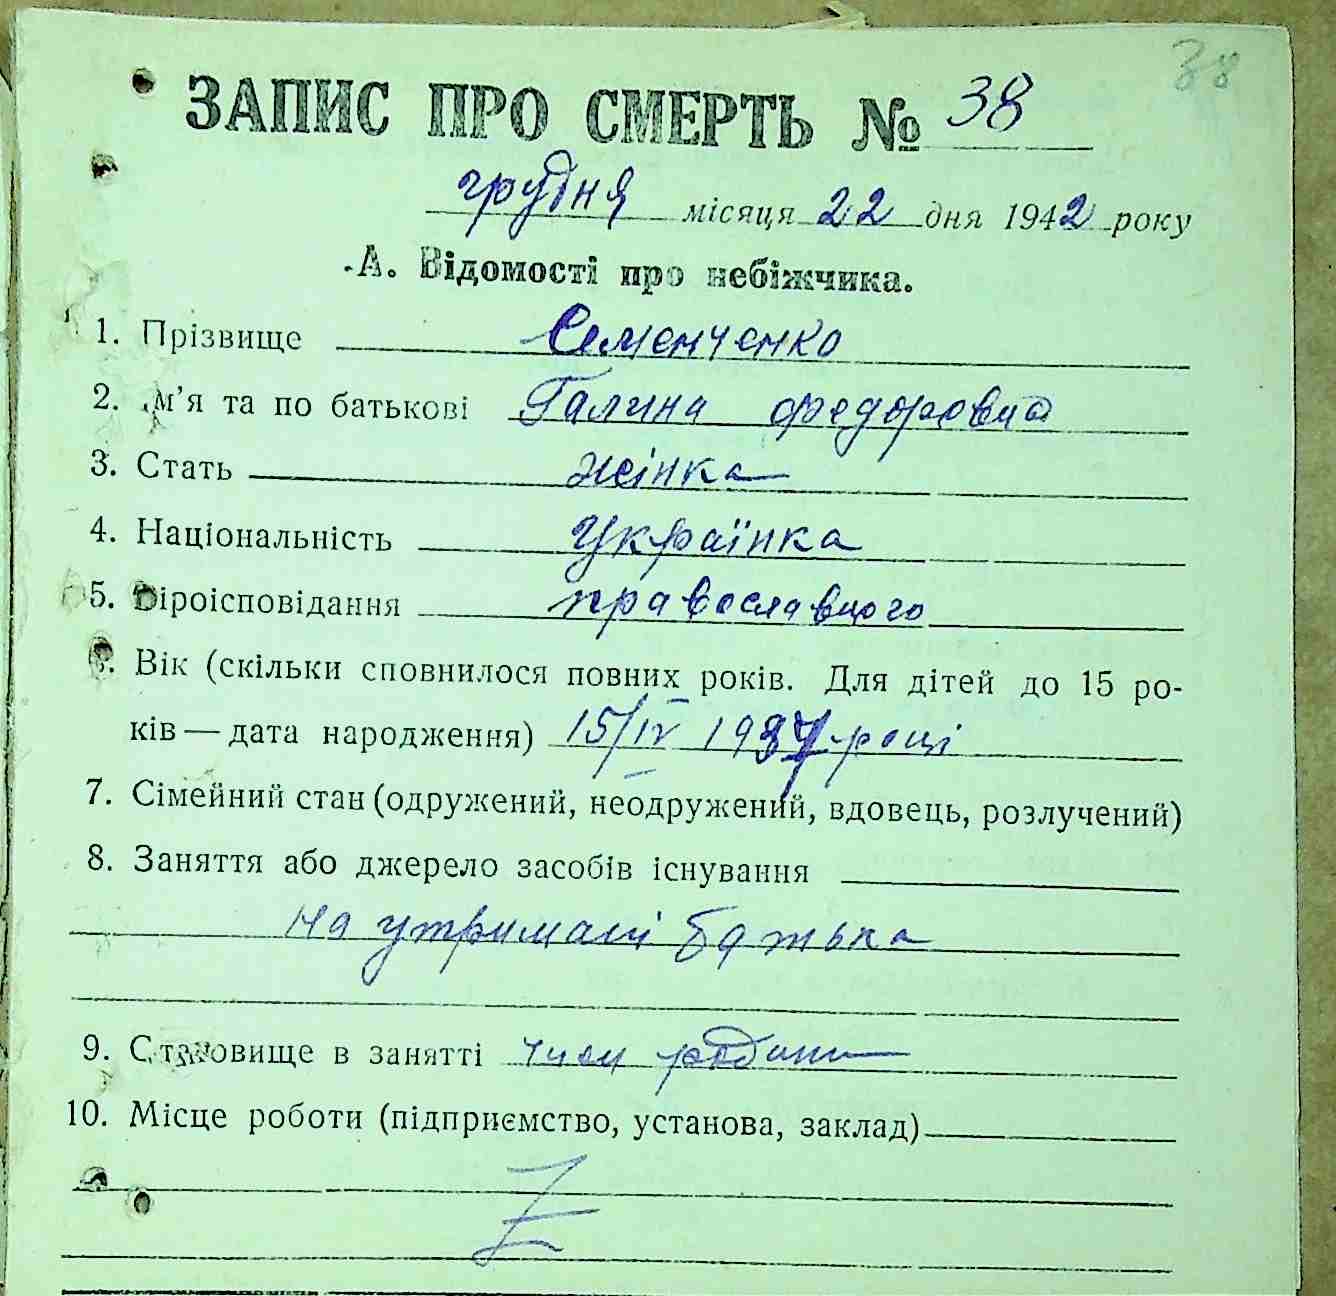 38
ЗАПИС ПРО СМЕРТЬ № 38
грудня місяця 22 дня 1942 року
А. Відомості про небіжчика.
1. Прізвище Семенченко
2. м'я та по батькові Галина Федоровна
3. Стать жінка
4. Національність Українка
5. Віроісповідання православного
6. Вік (скільки сповнилося повних років. Для дітей до 15 ро-
ків — дата народження) 15/IV 1937 році
7. Сімейний стан (одружений, неодружений, вдовець, розлучений)
8. Заняття або джерело засобів існування
на утримані батька
9. Становище в занятті член родини
10. Місце роботи (підприємство, установа, заклад)